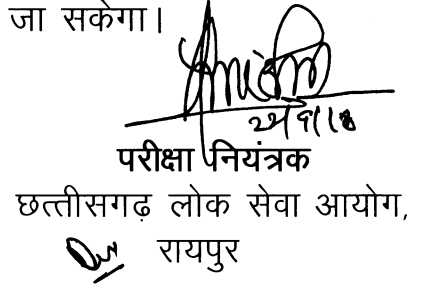 जा सकेगा।
परीक्षा नियंत्रक
छत्तीसगढ़ लोक सेवा आयोग,
रायपुर